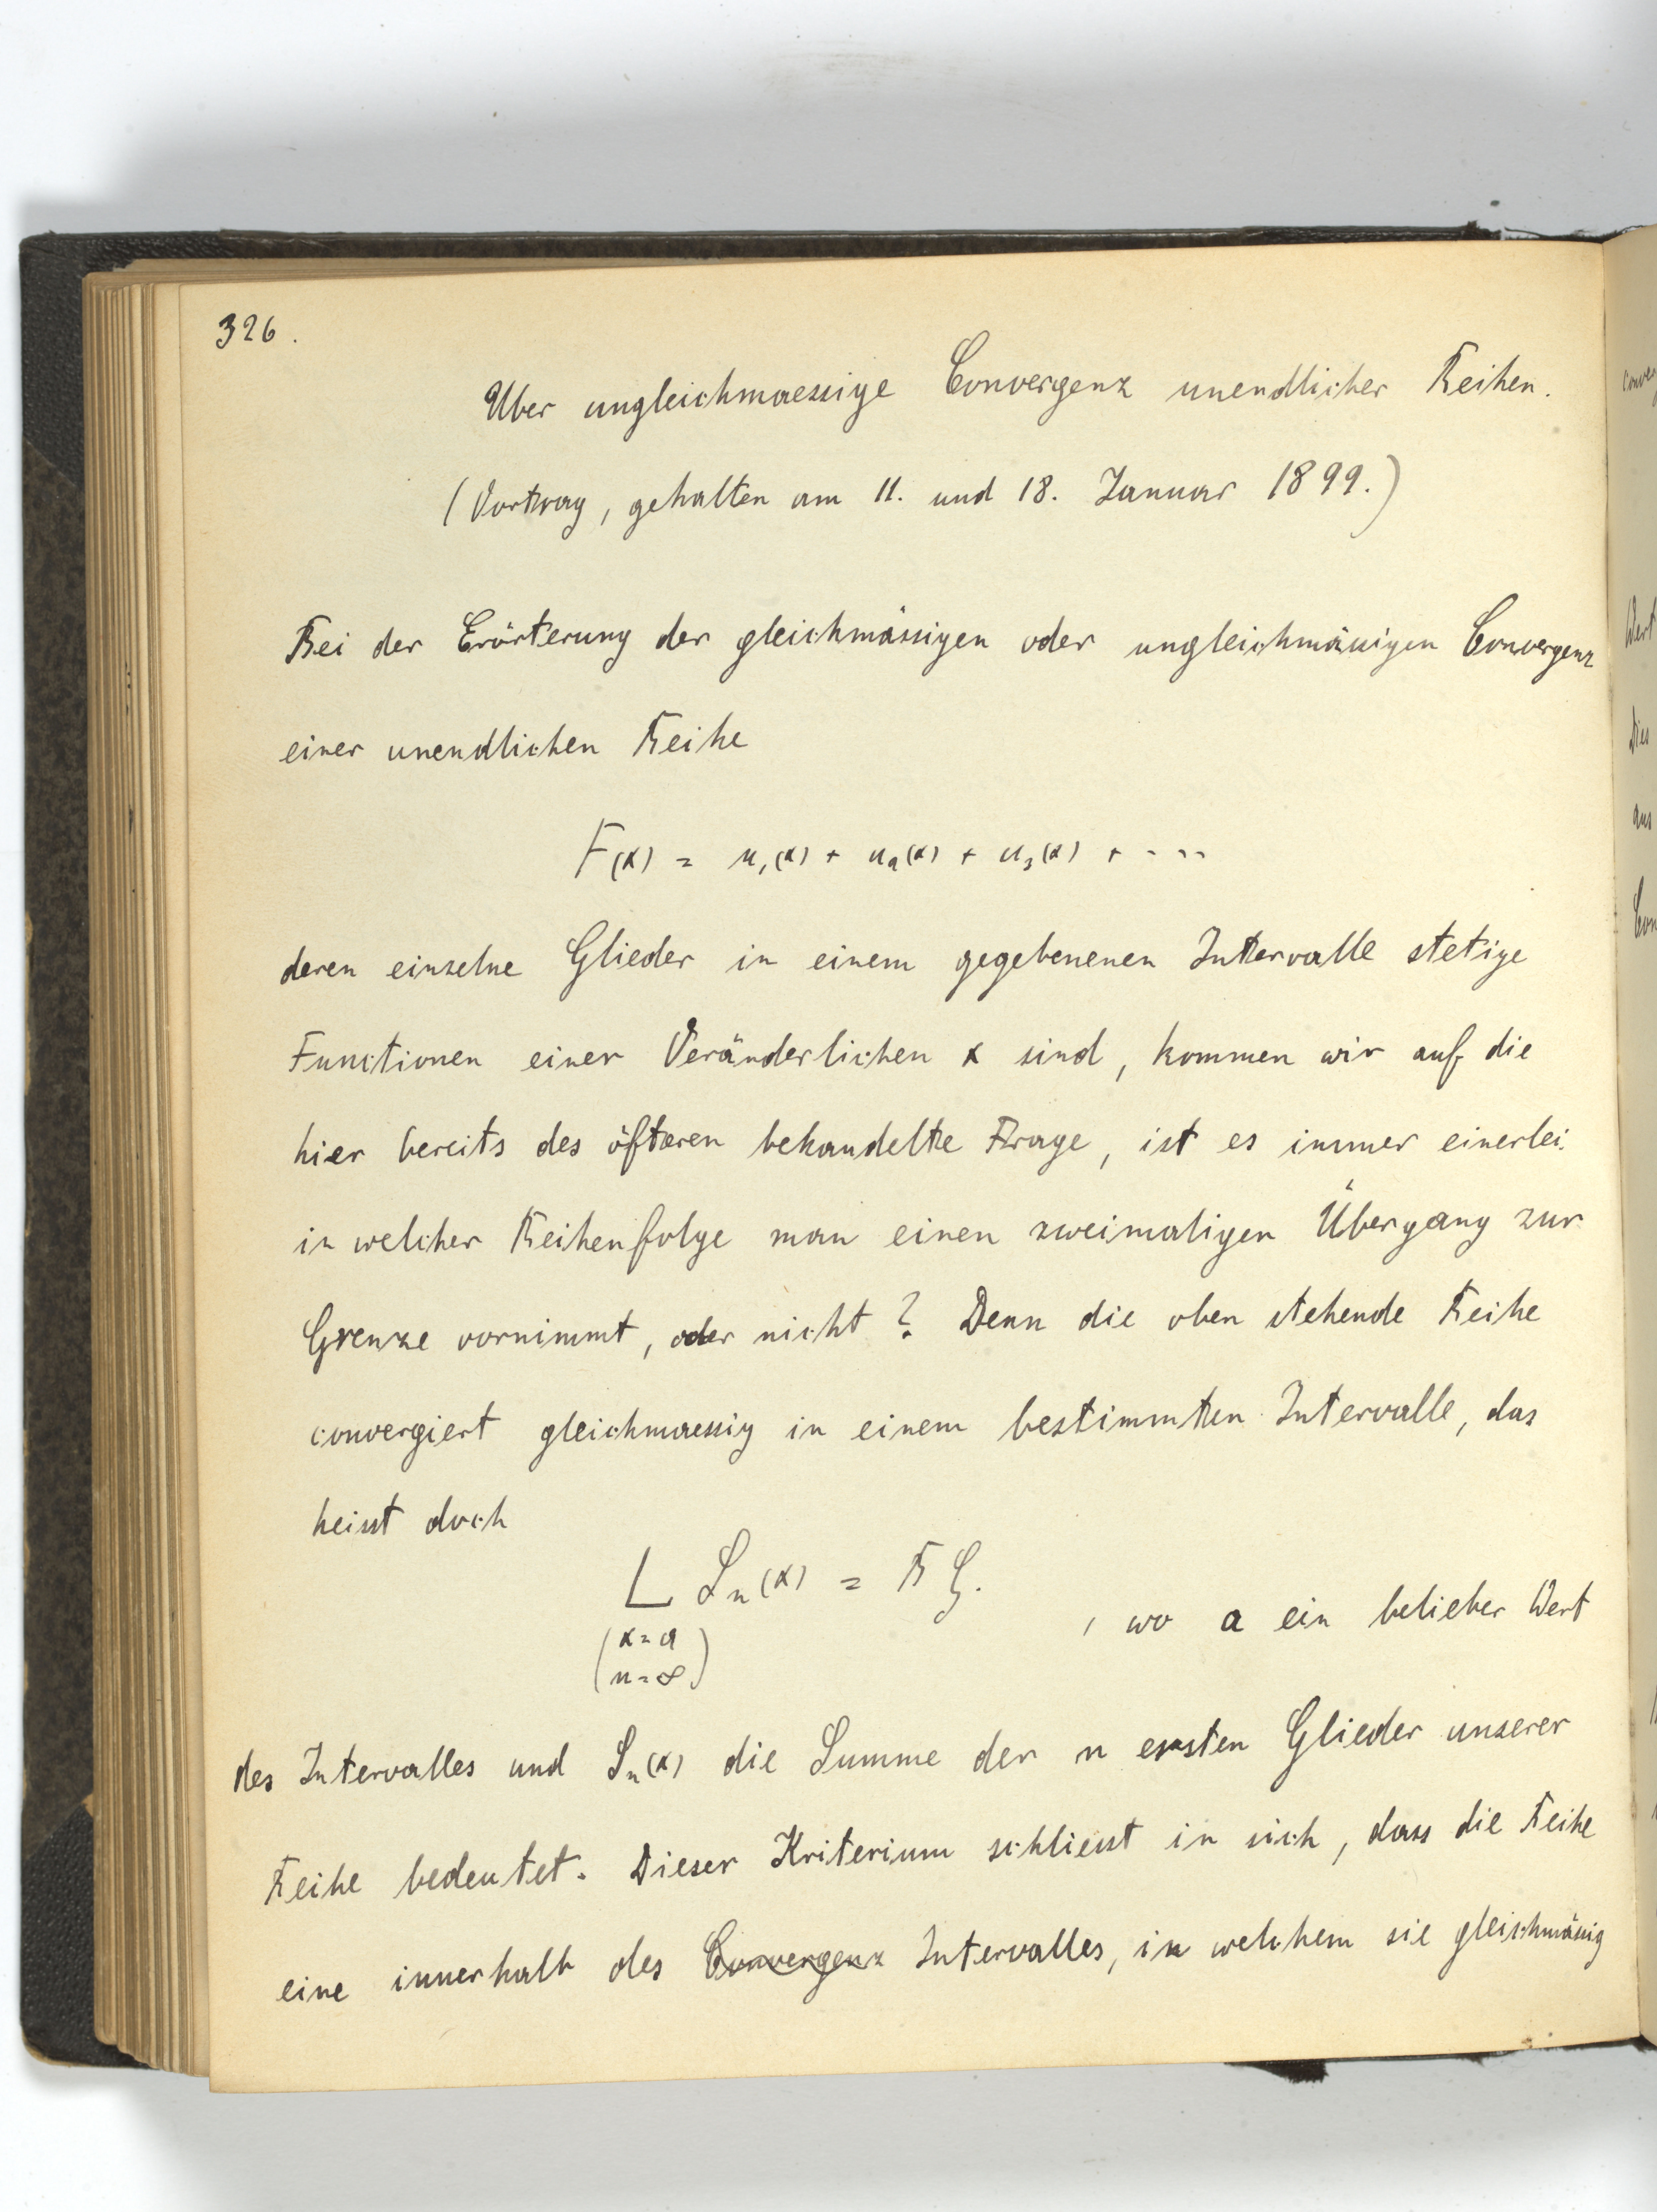 326.
Über ungleichmaessige Convergenz unendlicher Reihen.
(Vortrag, gehalten am 11. und 18. Januar 1899.)
Bei der Erörterung der gleichmässigen oder ungleichmässigen Convergenz
einer unendlichen Reihe
F(x) = u₁(x) + u₂(x) + u₃(x) + ....
deren einzelne Glieder in einem gegebenenen Intervalle stetige
Functionen einer Veränderlichen x sind, kommen wir auf die
hier bereits des öfteren behandelte Frage, ist es immer einerlei
in welcher Reihenfolge man einen zweimaligen Übergang zur
Grenze vornimmt, oder nicht? Denn die oben stehende Reihe
convergiert gleichmaessig in einem bestimmten Intervalle, das
heisst doch
L Sₙ(x) = B G.
(x=a
n=∞)
, wo a ein belieber Wert
des Intervalles und Sₙ(x) die Summe der n ersten Glieder unserer
Reihe bedeutet. Dieser Kriterium schliesst in sich, dass die Reihe
eine innerhalb des Convergenz Intervalles, in welchem sie gleichmässig
Wert
Dies
aus